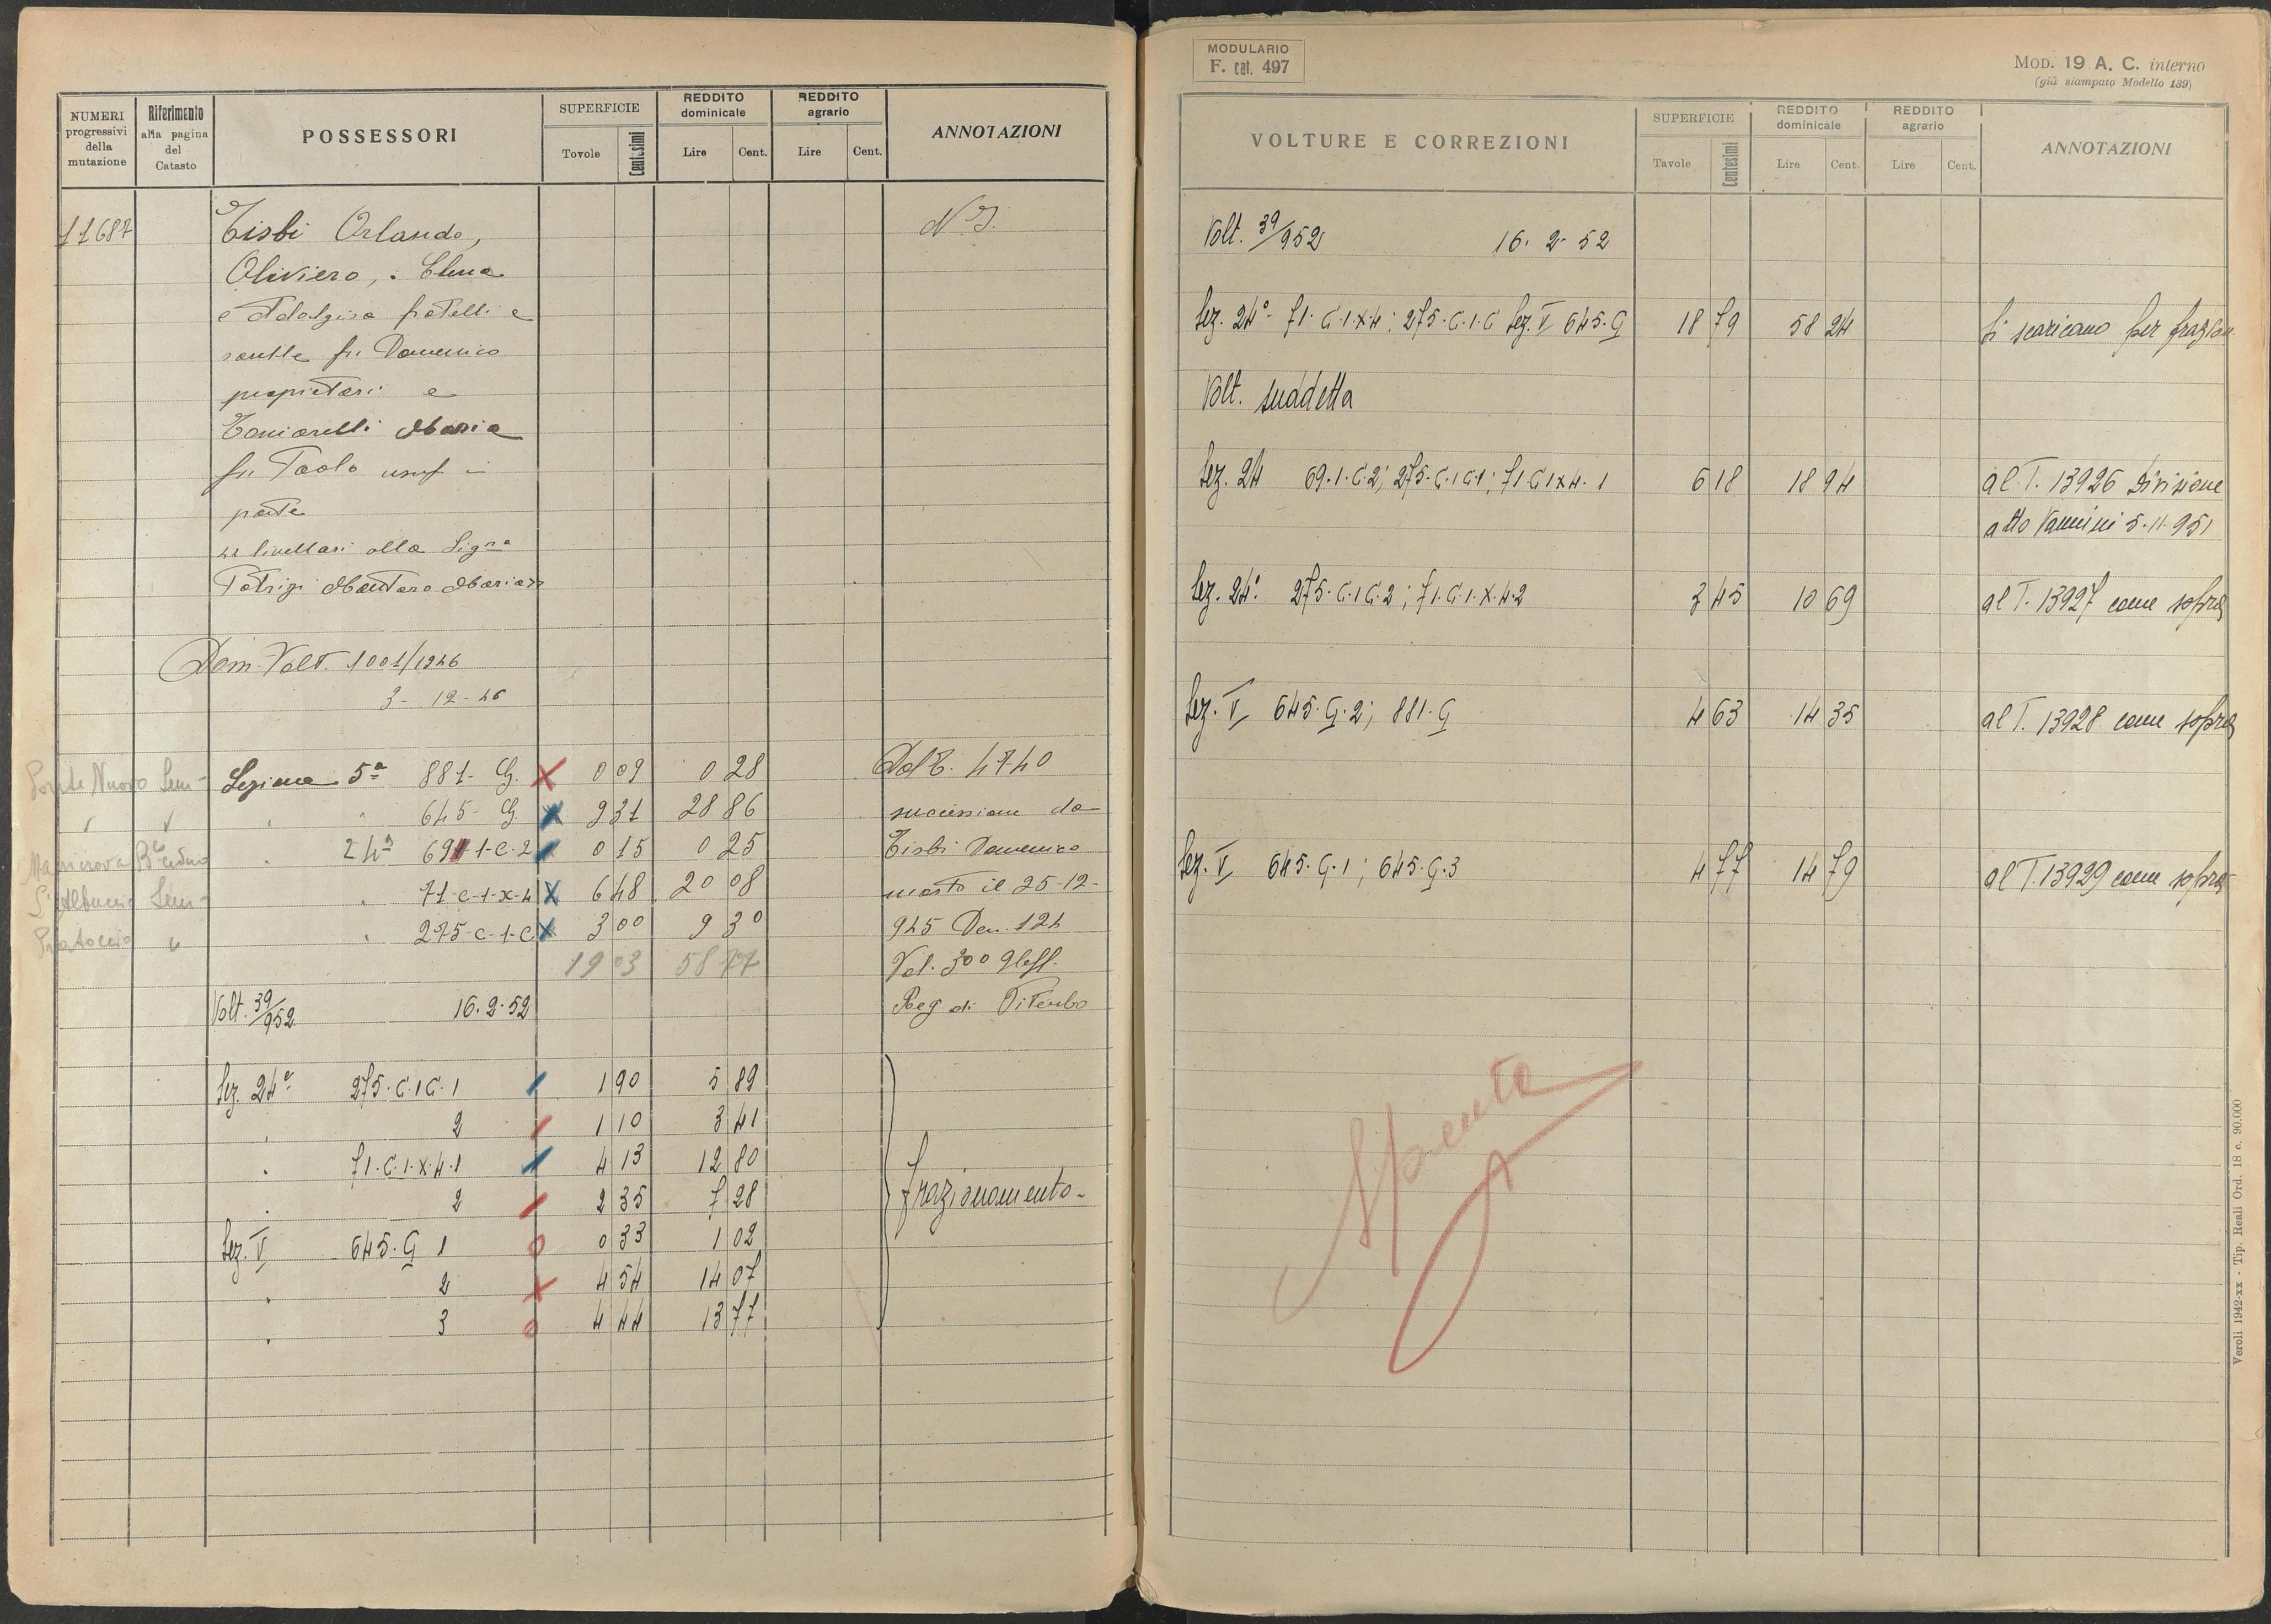 NUMERI progressivi della mutazione
Riferimento alla pagina del Catasto
POSSESSORI
SUPERFICIE
Tovole
Centesimi
REDDITO dominicale
Lire
Cent.
REDDITO agrario
Lire
Cent.
ANNOTAZIONI
11687
Tisbi Orlando,
N.I.
Oliviero, Elena
e Adalgisa fratelli e
sorelle fu Domenico
proprietari e
Maria
fu Paolo usuf in
parte
livellari alla Sigra
Patrizi Montoro Maria
Dom. Volt. 1001/1946
3-12-46
Ponte Nuovo Sem- Sezione 5a 881-G. 0 09 0 28 Dal T. 4740
645-G. 9 31 28 86 successione da
24a 69-1-C-2 0 15 0 25 Tisbi Domenico
Sem- 71-C-1-X-4 6 48 20 08 morto il 25-12-
275-C-1-C 3 00 9 30 945 Den. 124
19 03 58 77 Vol. 300
Volt. 39/952 16.2.52 Reg di Viterbo
Sez. 24a 275.C.1C.1 1 90 5 89
2 1 10 3 41
71.C.1.X.4.1 4 13 12 80
2 2 35 7 28
frazionamento-
Sez. V 645.G 1 0 33 1 02
2 4 54 14 07
3 4 44 13 77
MODULARIO
F. cat. 497
MOD. 19 A. C. interno
(già stampato Modello 139)
VOLTURE E CORREZIONI
SUPERFICIE
Tavole
Centesimi
REDDITO dominicale
Lire
Cent.
REDDITO agrario
Lire
Cent.
ANNOTAZIONI
Volt. 39/952 16.2.52
Sez. 24a- 71.C.1.X.4; 275.C.1.C Sez. V 645.G 18 79 58 24 Si scaricano per frazion
Volt. suddetta
Sez. 24 69.1.C.2; 275.C.1C1; 71C1X4.1 6 18 18 94 al T. 13926 Divisione
atto Vannini 5.11.951
Sez. 24a 275.C.1C.2; 71.C.1.X.4.2 3 45 10 69 al T. 13927 come sopra
Sez. V 645.G.2; 881.G 4 63 14 35 al T. 13928 come sopra
Sez. V 645.G.1; 645.G.3 4 77 14 79 al T. 13929 come sopra
Spenta
Veroli 1942-XX - Tip. Reali Ord. 18 c. 90.000